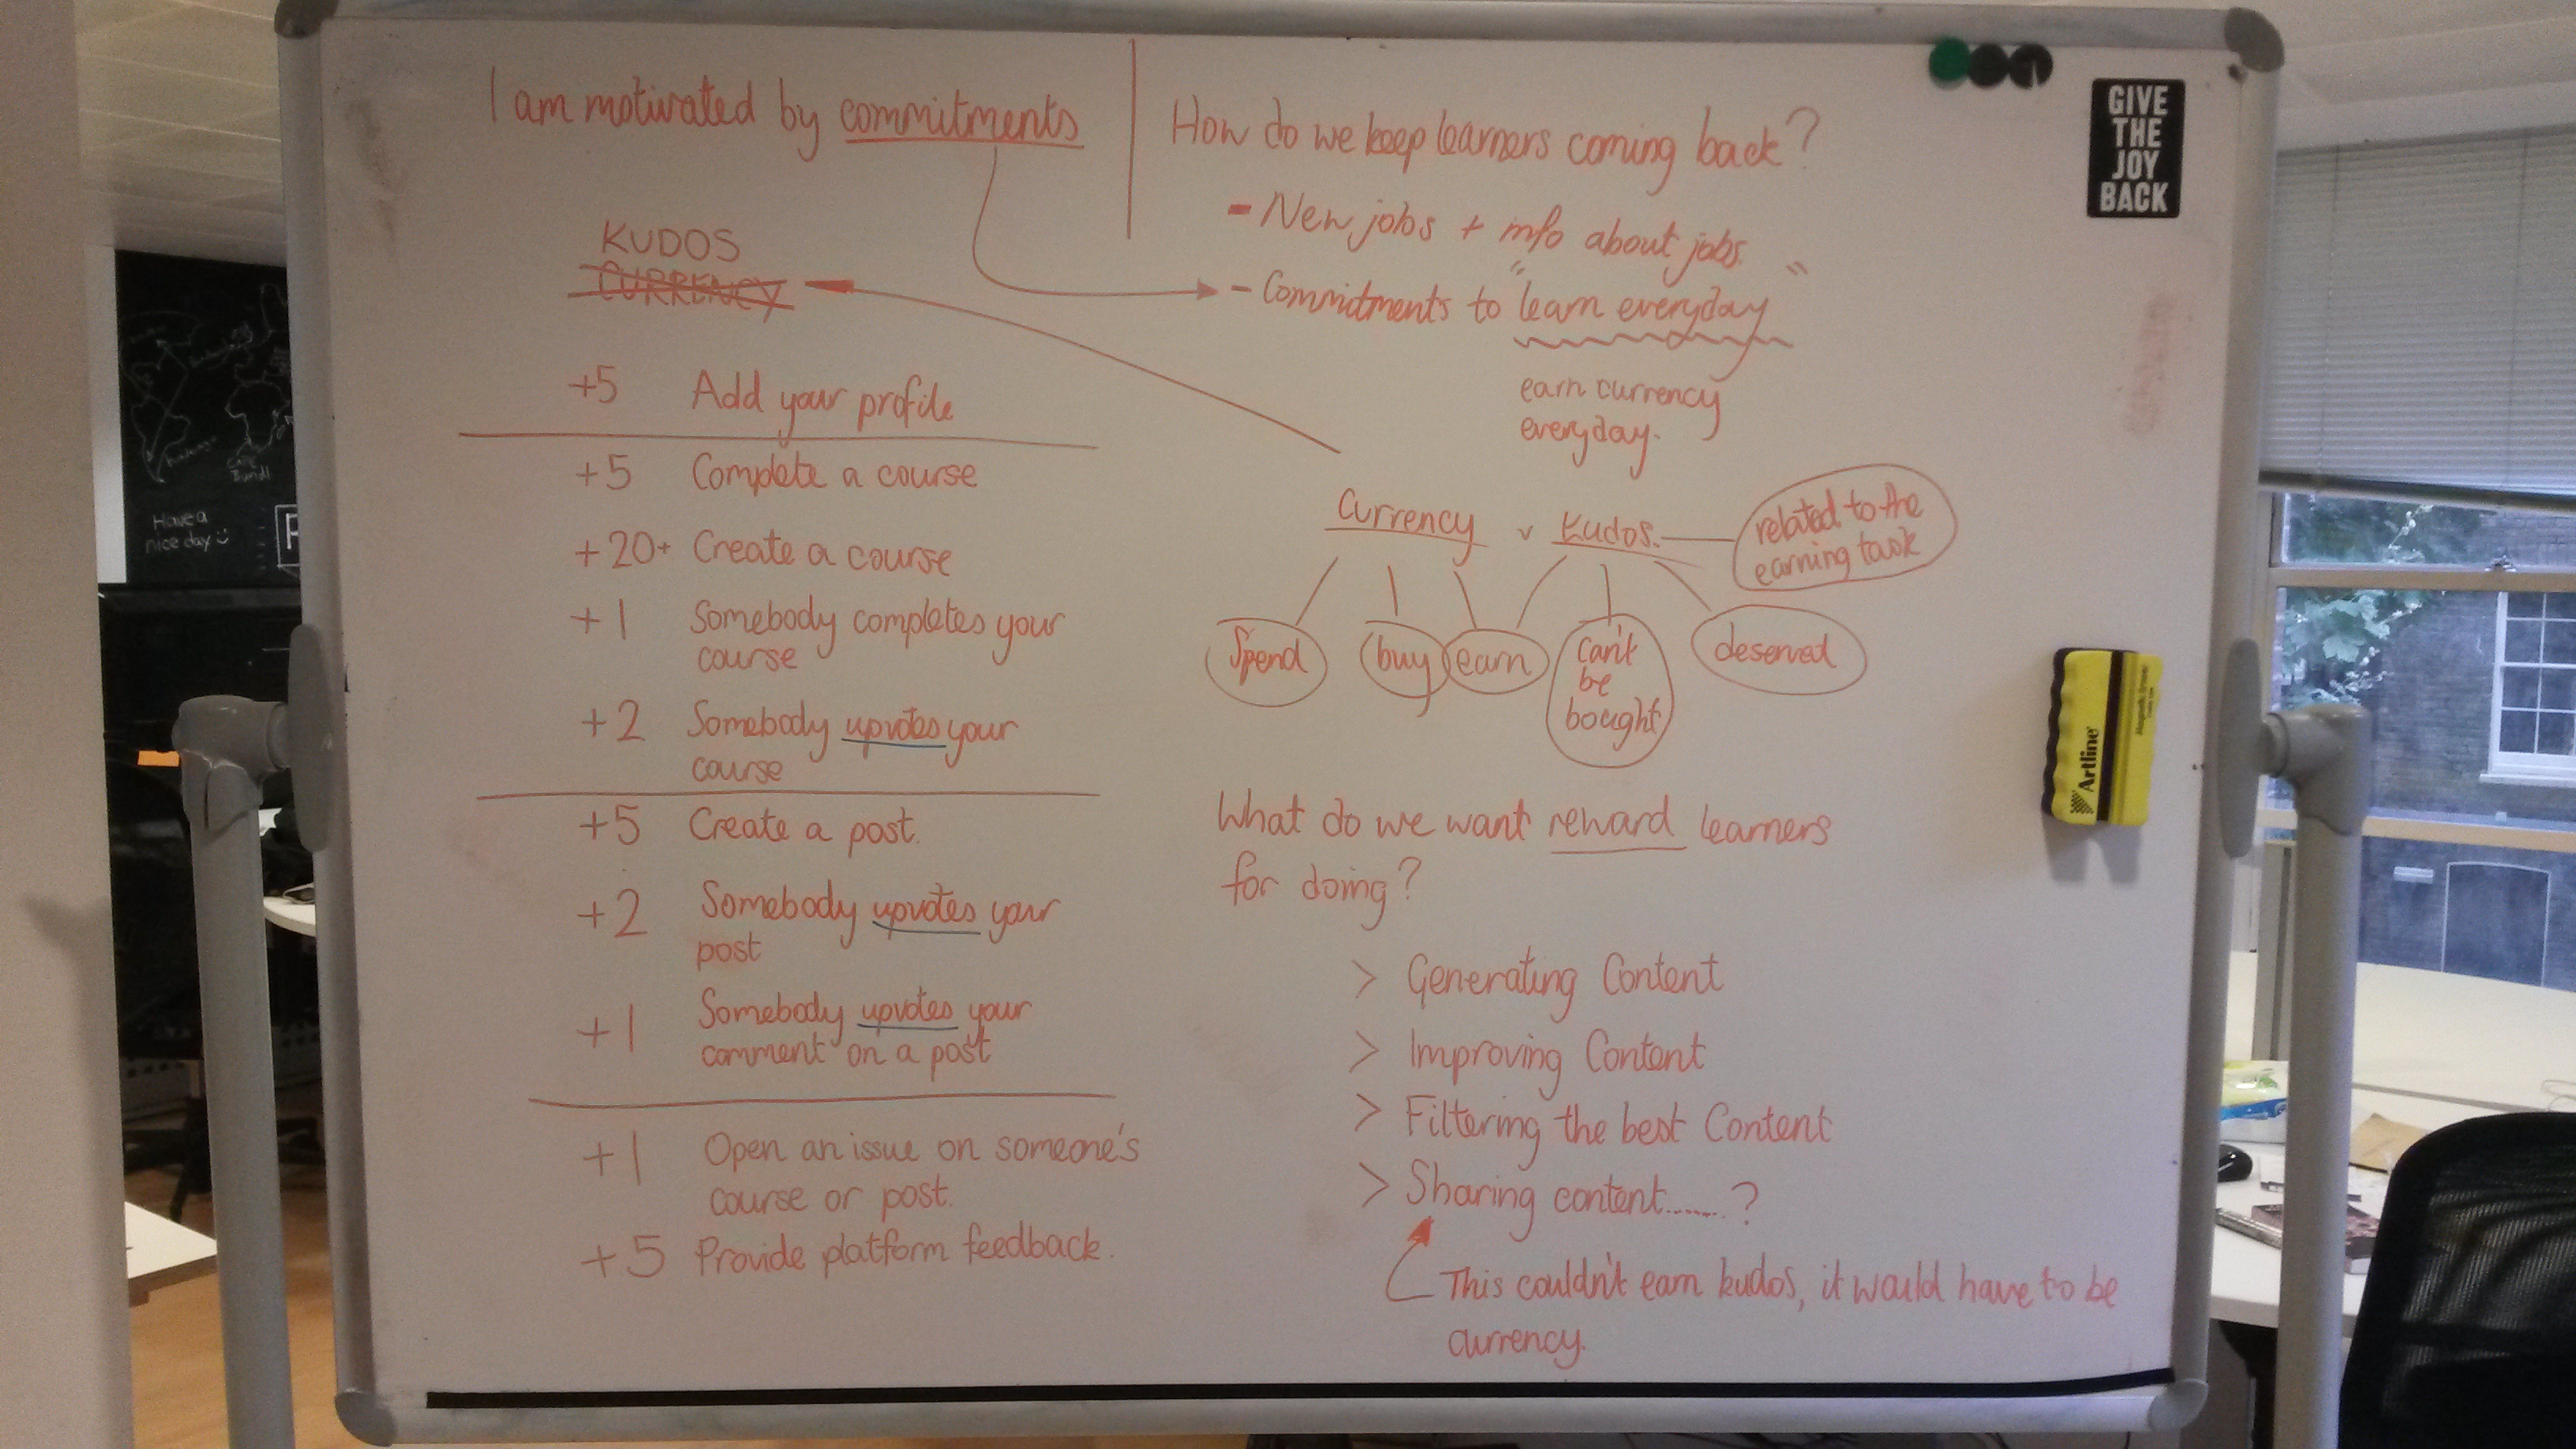 I am motivated by commitments
KUDOS
CURRENCY
+5 Add your profile
+5 Complete a course
+20+ Create a course
+1 Somebody completes your
course
+2 Somebody upvotes your
course
+5 Create a post.
+2 Somebody upvotes your
post
+1 Somebody upvotes your
comment on a post
+1 Open an issue on someone's
course or post.
+5 Provide platform feedback.
How do we keep learners coming back?
- New jobs + info about jobs.
- Commitments to "learn everyday"
earn currency
everyday.
Currency v Kudos.
related to the
earning task
Spend
buy
earn
can't
be
bought
deserved
What do we want reward learners
for doing?
> Generating Content
> Improving Content
> Filtering the best Content
> Sharing content.......?
This couldn't earn kudos, it would have to be
currency.
GIVE
THE
JOY
BACK
Artline
Have a
nice day